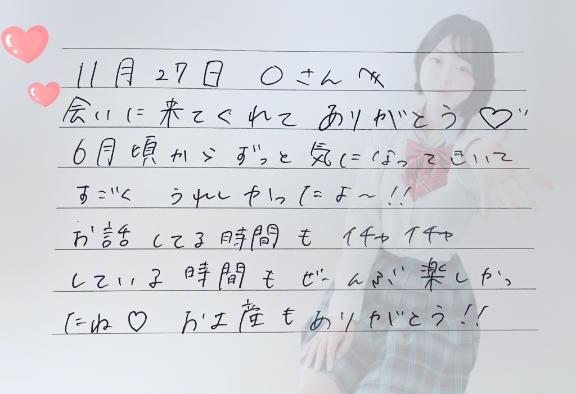 11月27日 〇さんへ
会いに来てくれて ありがとう♡
6月頃から ずっと 気になってきいて
すごく うれしかったよ〜!!
お話してる時間も イチャイチャ
している時間も ぜーんぶ楽しかっ
たね♡ お土産もありがとう!!